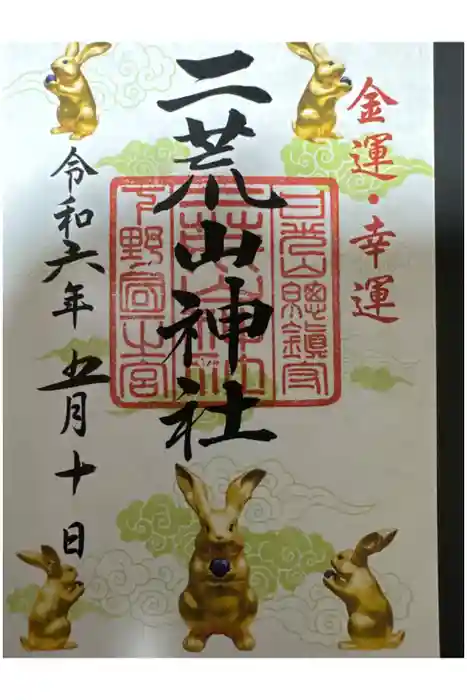 金運・幸運
二荒山神社
日光山總鎮守
二荒山神社
下野國一宮
令和六年五月十日